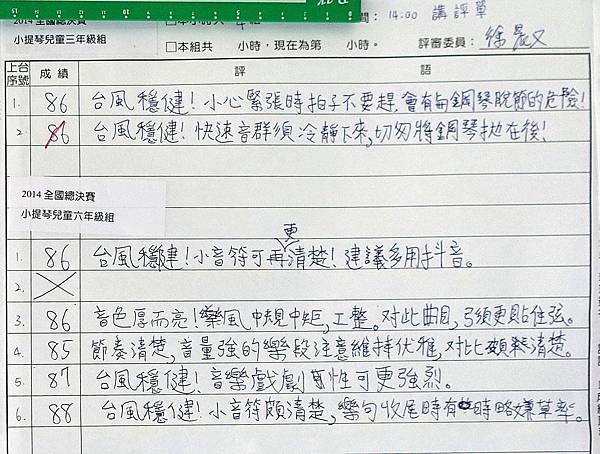 2014 全國總決賽
間：14:00 講評單
小提琴兒童三年級組
□本組共 小時，現在為第 小時。 評審委員：徐晨又
上台序號 成績 評語
1. 86 台風穩健！小心緊張時拍子不要趕，會有與鋼琴脫節的危險！
2. 86 台風穩健！快速音群須冷靜下來，切勿將鋼琴拋在後！
2014 全國總決賽
小提琴兒童六年級組
更
1. 86 台風穩健！小音符可再清楚！建議多用抖音。
2.
3. 86 音色厚而亮！樂風中規中矩，工整。對此曲目，弓須更貼住弦。
4. 85 節奏清楚，音量強的樂段注意維持優雅，對比頗清楚。
5. 87 台風穩健！音樂戲劇性可更強烈。
6. 88 台風穩健！小音符頗清楚，樂句收尾時有時略嫌草率。